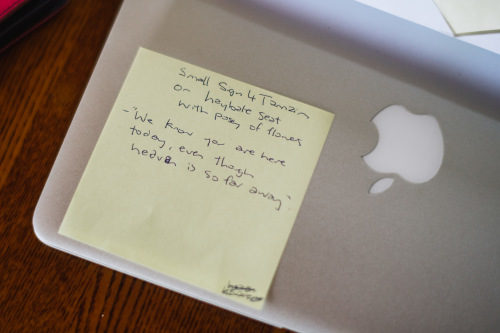 Small Sign 4 Tamzin
on haybale seat
with posy of flowers
- "We know you are here
today, even though
heaven is so far away"